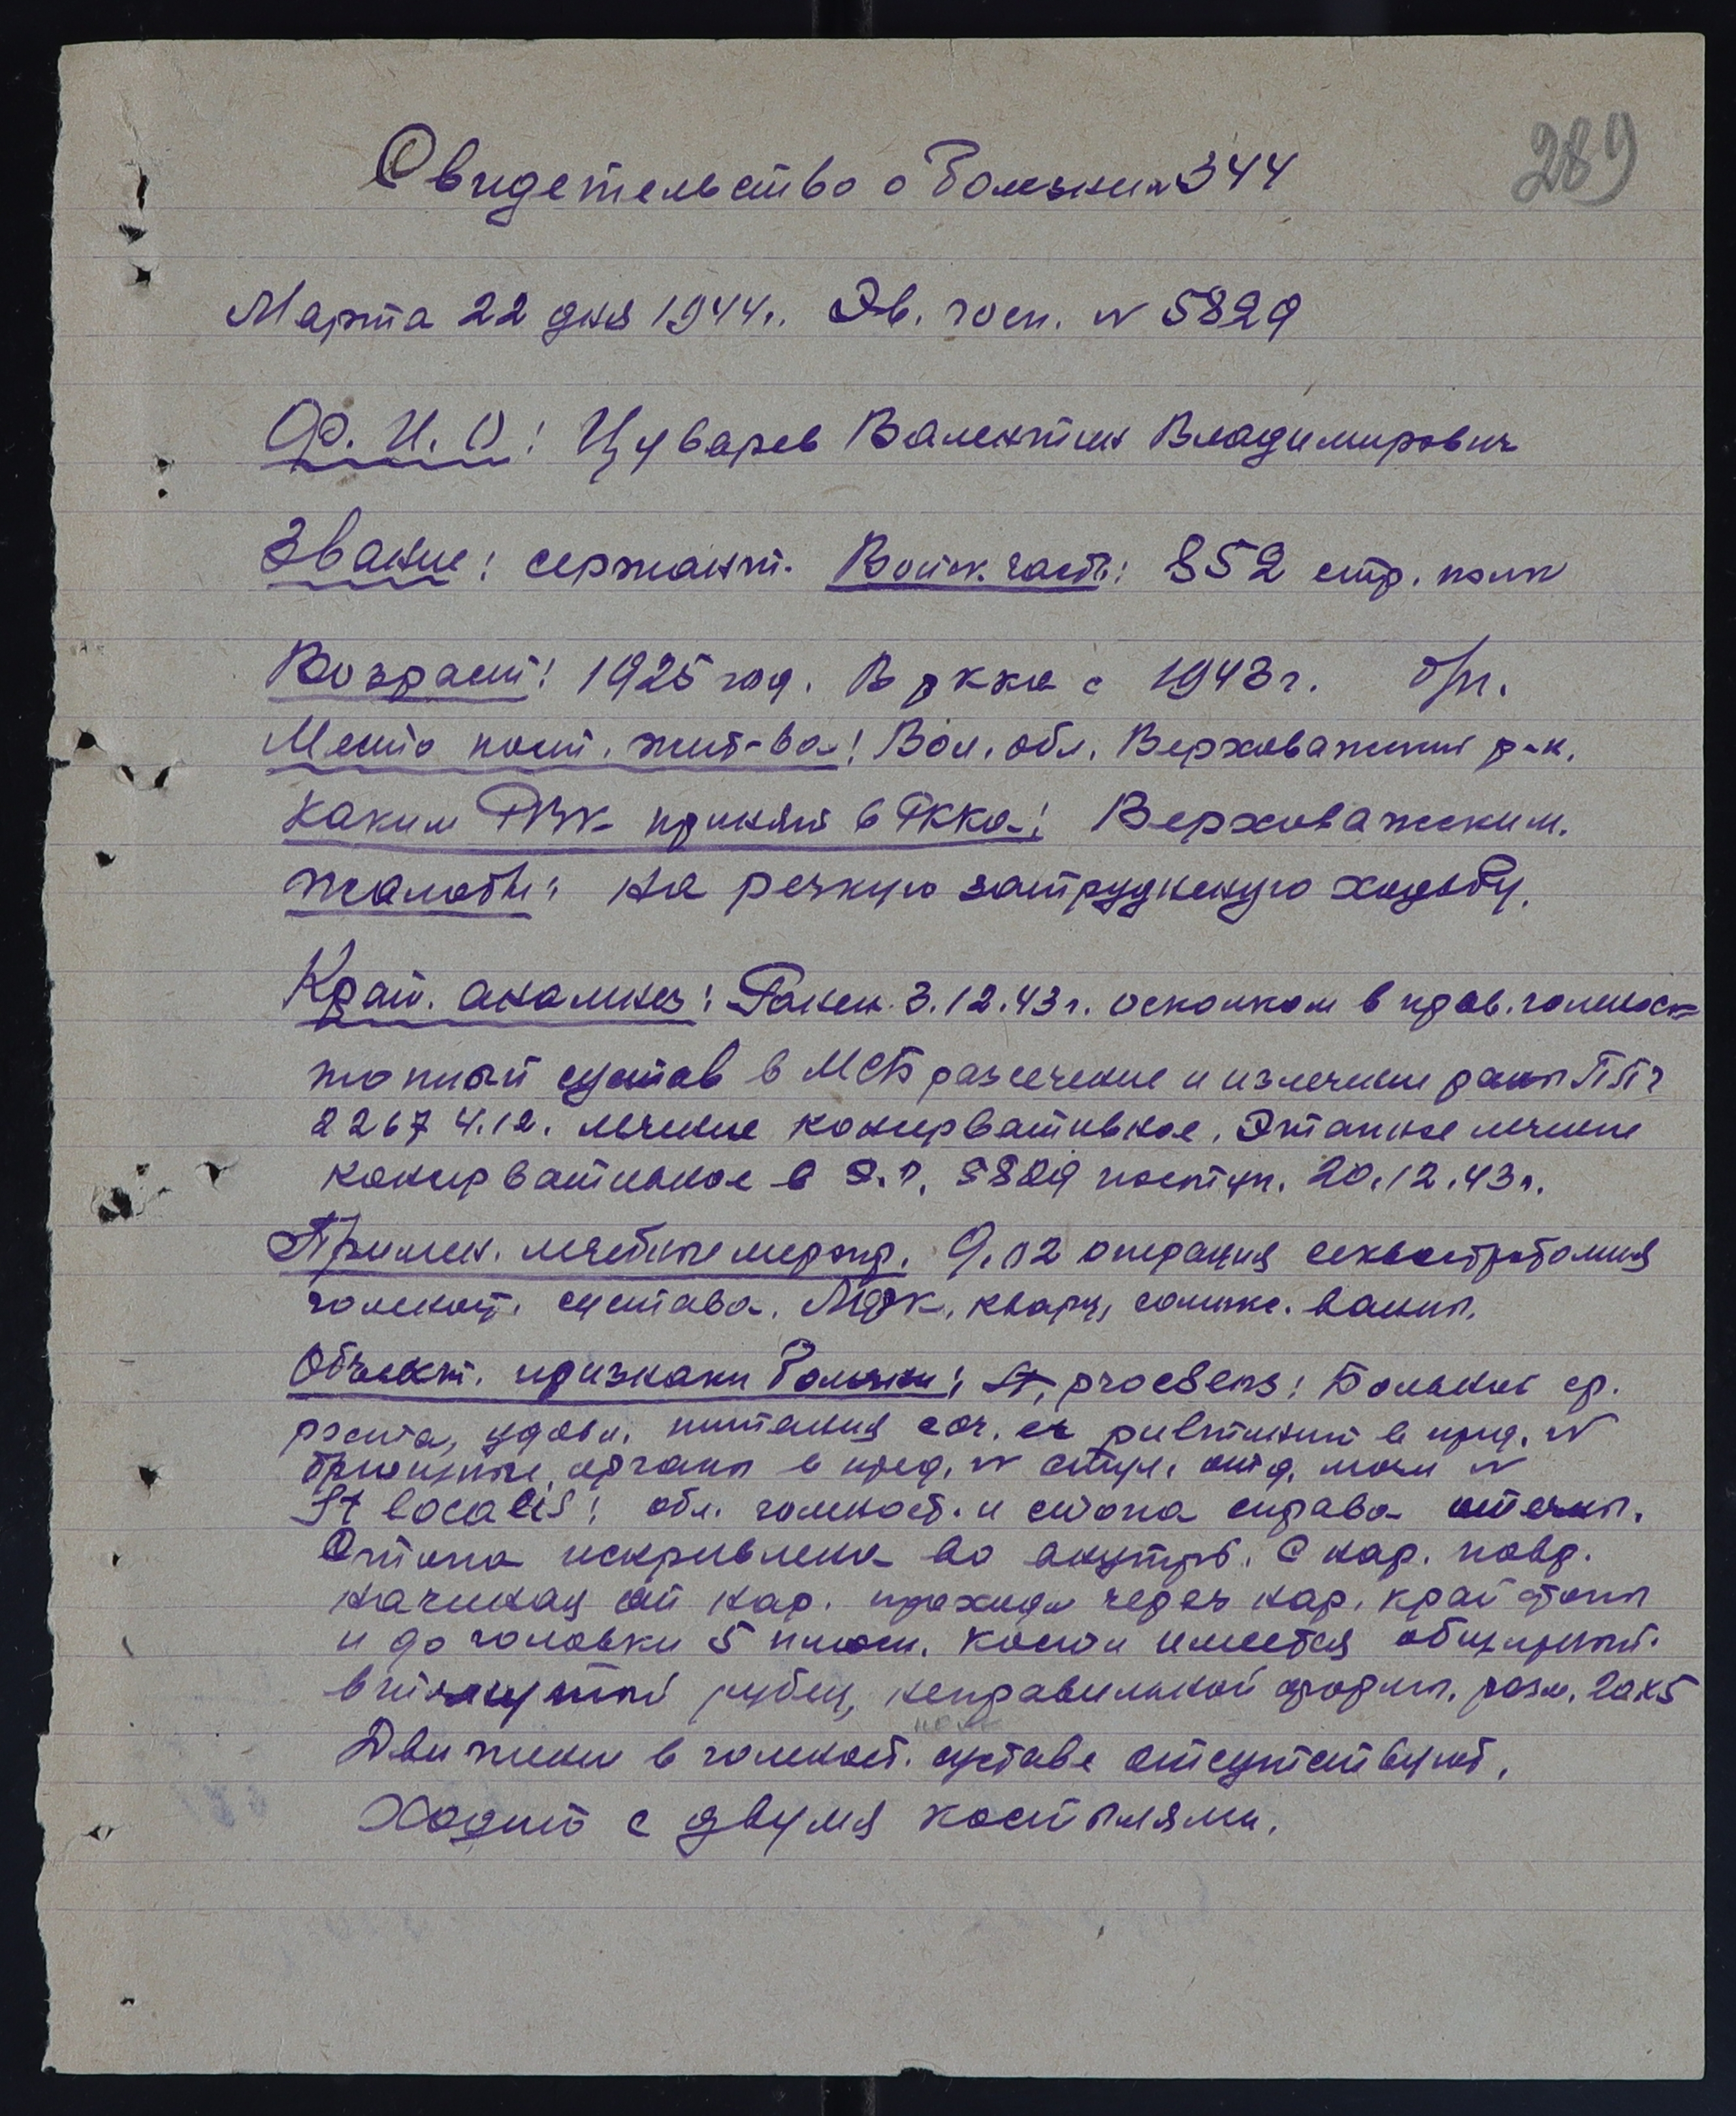 289
Свидетельство о болезни N 344
Марта 22 дня 1944 г. Эв. госп. N 5829
Ф. И. О: Цуварев Валентин Владимирович
Звание: сержант. Войск. часть: 852 стр. полк
Возраст: 1925 год. В ркка с 1943 г. б/п.
Место пост. жит-ва: Вол. обл. Верховажский р-н.
Каким РВК принят в РККа: Верховажским.
Жалобы: на резкую затрудненую ходьбу.
Крат. анамнез: Ранен 3.12.43 г. осколком в прав. голеност-
топный сустав в МСБ рассечение и иссечение раны ППГ
2267 4.12. лечение консервативное. Этапное лечение
консервативное в Э.Г. 5829 поступ. 20.12.43 г.
Примен. лечебные меропр. 9.02 операция секвестротомия
голеност. сустава. ЛФК, кварц, солнце. ванны.
Объект. признаки болезни: St. praesens: Больной ср.
роста, удовл. питания в пред. N
брюшные органы в пред. N стул. отд. мочи N
St localis: обл. голеност. и стопа справа отечны.
Стопа искривлена во внутрь. С нар. повр.
начиная от нар. проходя через нар. край стопы
и до головки 5 плюсн. кости имеется обширный
втянутый рубец, неправильной формы. разм. 20х5
Движения в голеност. суставе отсутствуют.
Ходит с двумя костылями.